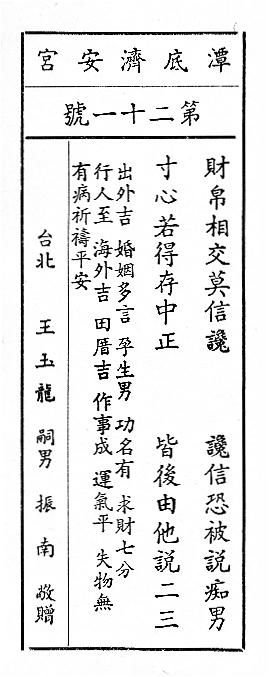 潭底濟安宮
第二十一號
財帛相交莫信讒　讒信恐被説痴男
寸心若得存中正　皆後由他説二三
出外吉　婚姻多言　孕生男　功名有　求財七分
行人至　海外吉　田厝吉　作事成　運氣平　失物無
有病祈禱平安
台北　王玉龍　嗣男　振南　敬贈